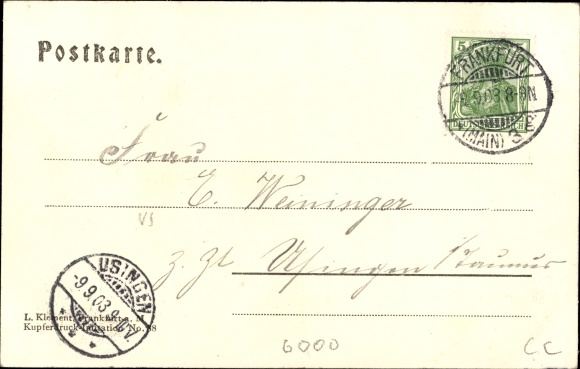 Postkarte.
5
FRANKFURT
9.03 8-9N
(MAIN)
Frau
E. Weininger
VS
z. Zt. Usingen Taunus
USINGEN
-9.9.03
L. Klement, Frankfurt a. M.
Kupferdruck-Imitation No.
6000
CC